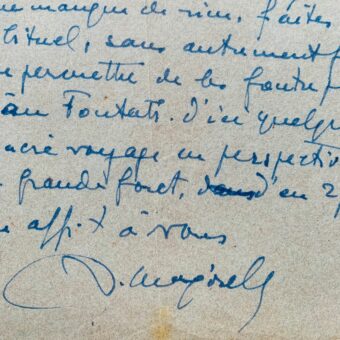 manque de rien, faites
bituel, sans autrement
permette de les foutre
au Foutati. D'ici quelque
sacré voyage en perspective
grande foret, d'en 2
aff. t à vous.